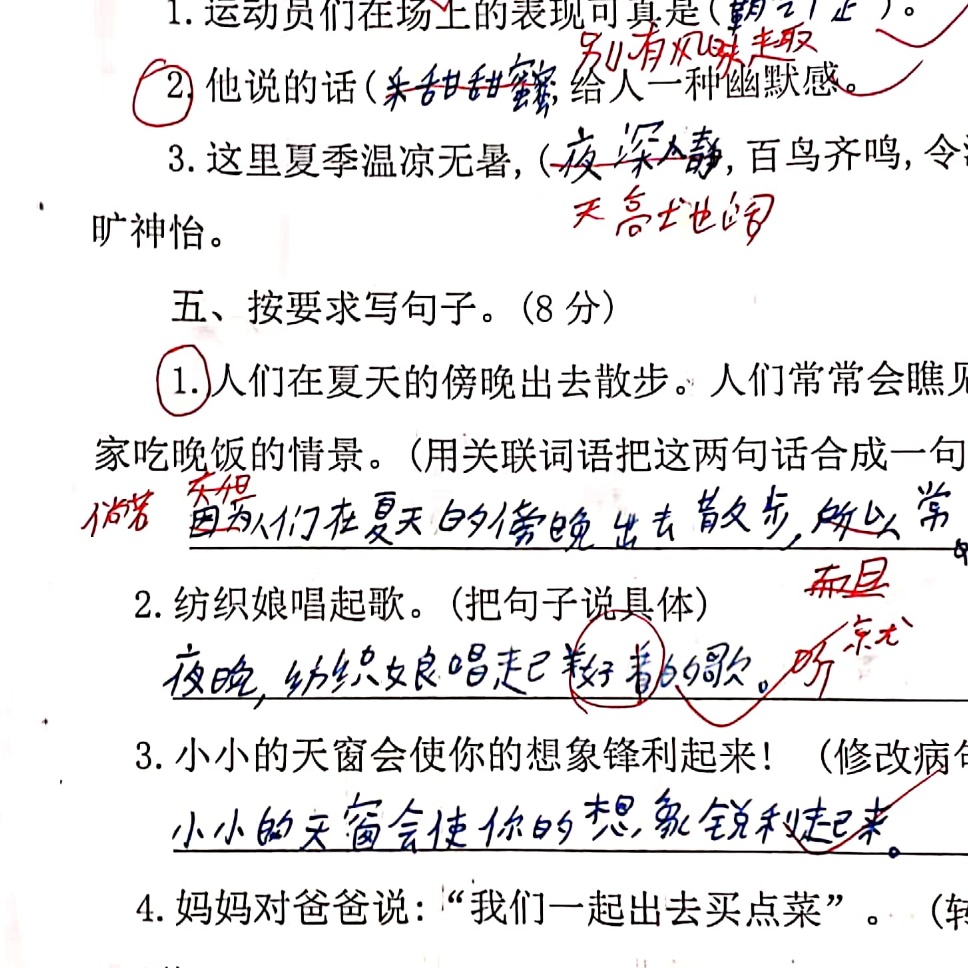 1.运动员们在场上的表现可真是(
别有风味趣
2.他说的话(朱甜甜蜜蜜,给人一种幽默感。
3.这里夏季温凉无暑,(夜深人静,百鸟齐鸣,令
天高地阔
旷神怡。
五、按要求写句子。(8 分)
1.人们在夏天的傍晚出去散步。人们常常会瞧见
家吃晚饭的情景。(用关联词语把这两句话合成一句
倘若 不但
因为人们在夏天的傍晚出去散步,所以常
而且
2.纺织娘唱起歌。(把句子说具体)
就
夜晚,纺织娘唱起好着的歌。听
3.小小的天窗会使你的想象锋利起来! (修改病句
小小的天窗会使你的想象锐利起来。
4.妈妈对爸爸说:“我们一起出去买点菜”。 (转